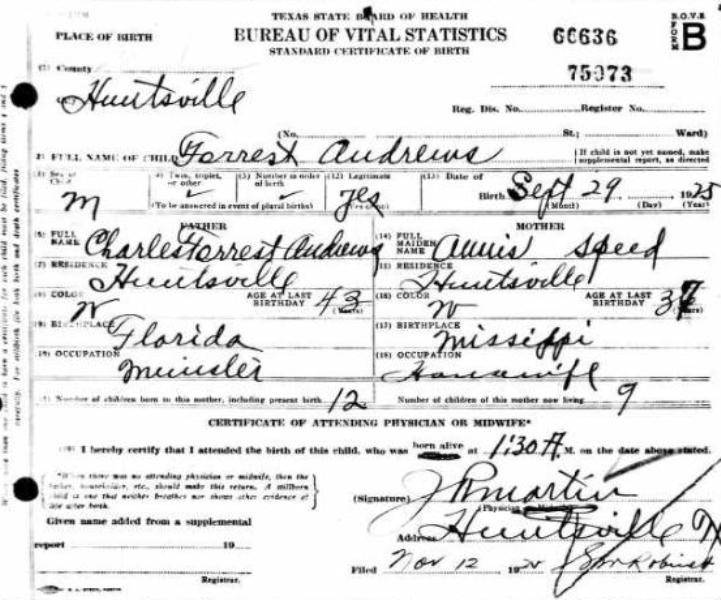 TEXAS STATE BOARD OF HEALTH
PLACE OF BIRTH BUREAU OF VITAL STATISTICS 66636 B.O.V.S FORM B
STANDARD CERTIFICATE OF BIRTH
County 75973
Huntsville
Reg. Dis. No. Register No.
(No. St.; Ward)
FULL NAME OF CHILD Forrest Andrews If child is not yet named, make supplemental report, as directed
Sex of Child M Twin, triplet, or other Number in order of birth (12) Legitimate Yes (13) Date of Birth Sept 29 1925
(To be answered in event of plural births) (Month) (Day) (Year)
FATHER MOTHER
FULL NAME Charles Forrest Andrews (14) FULL MAIDEN NAME Annis Speed
RESIDENCE Huntsville RESIDENCE Huntsville
COLOR W AGE AT LAST BIRTHDAY 43 (Years) (16) COLOR W AGE AT LAST BIRTHDAY (Years)
BIRTHPLACE Florida (17) BIRTHPLACE Missippi
OCCUPATION Minister (18) OCCUPATION Housewife
Number of children born to this mother, including present birth 12 Number of children of this mother now living 9
CERTIFICATE OF ATTENDING PHYSICIAN OR MIDWIFE*
I hereby certify that I attended the birth of this child, who was born alive at 1:30 A. M. on the date above stated.
*When there was no attending physician or midwife, then the father, householder, etc., should make this return. A stillborn child is one that neither breathes nor shows other evidence of life after birth.
(Signature) Martin
(Physician or Midwife)
Given name added from a supplemental Address Huntsville Tx
report 19
Filed Nov 12 192
Registrar. Registrar.